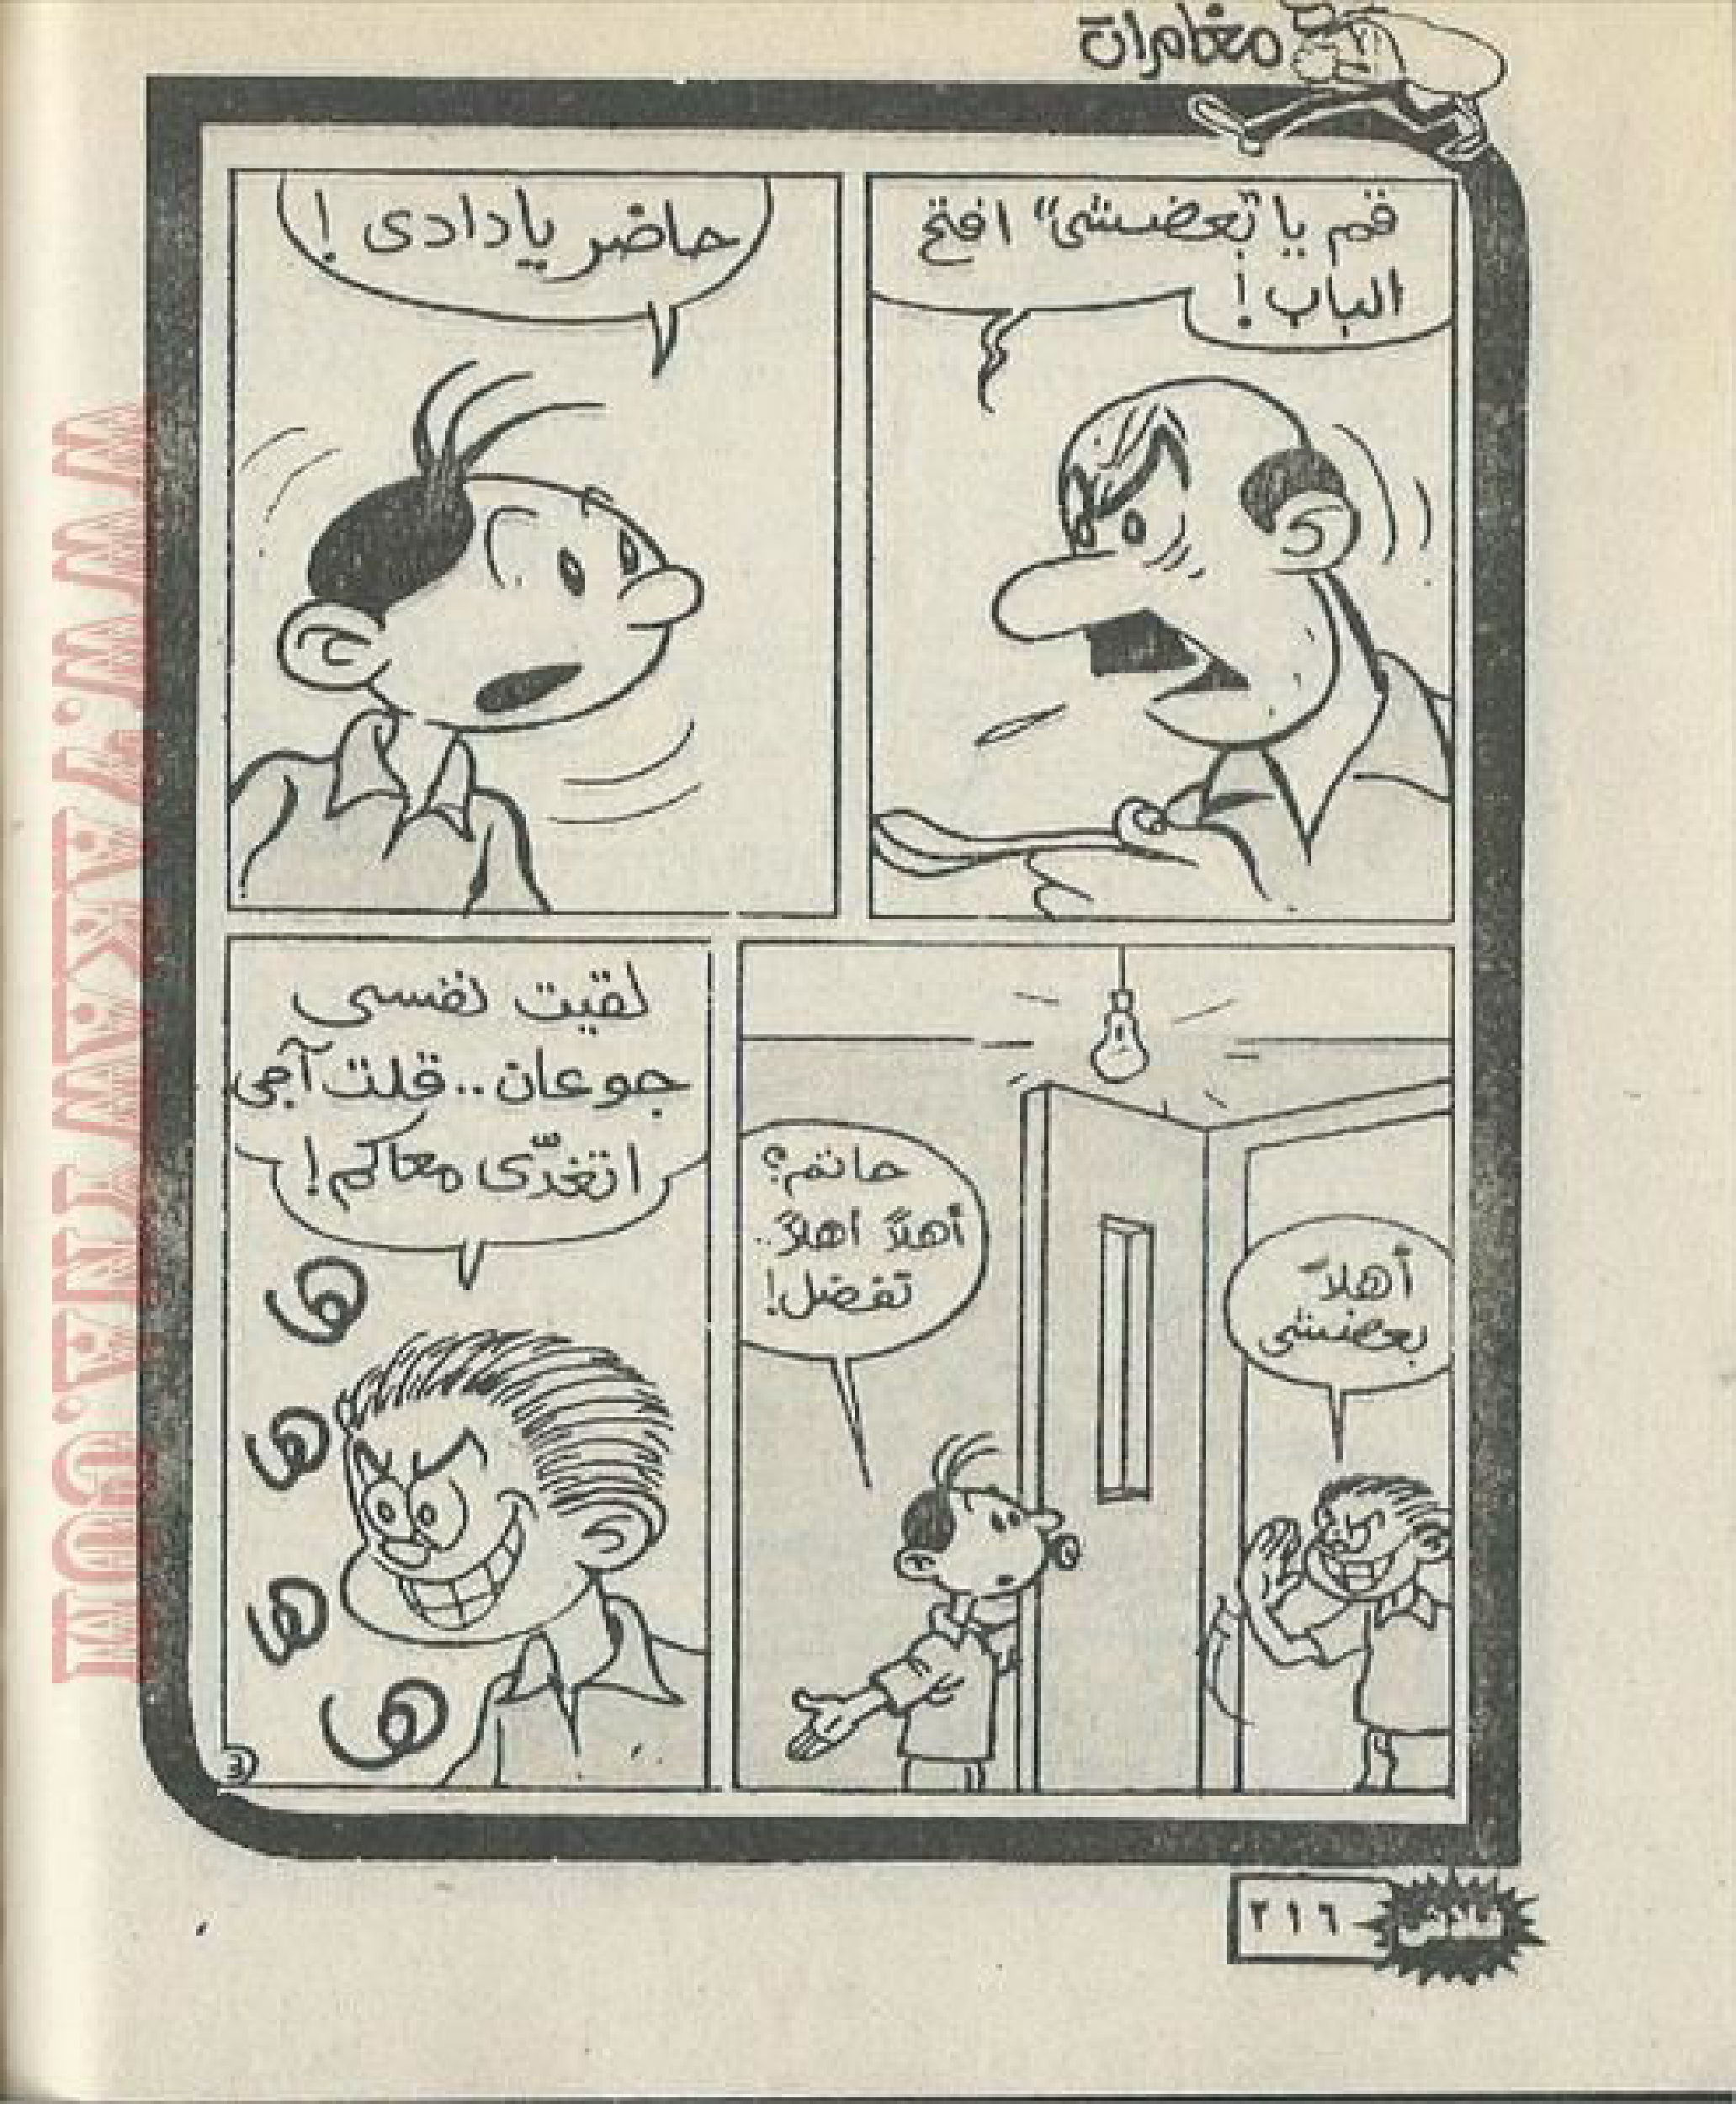 مغامرات
قم يا "بعضشى" افتح
الباب !
حاضر يا دادى !
أهلاً
بعضشى
حاتم؟
أهلاً أهلاً..
تفضل!
لقيت نفسى
جوعان.. قلت آجى
اتغدّى معاكم!
ها
ها
ها
ها
٣
٢١٦
WWW.ARABCOMICS.NET